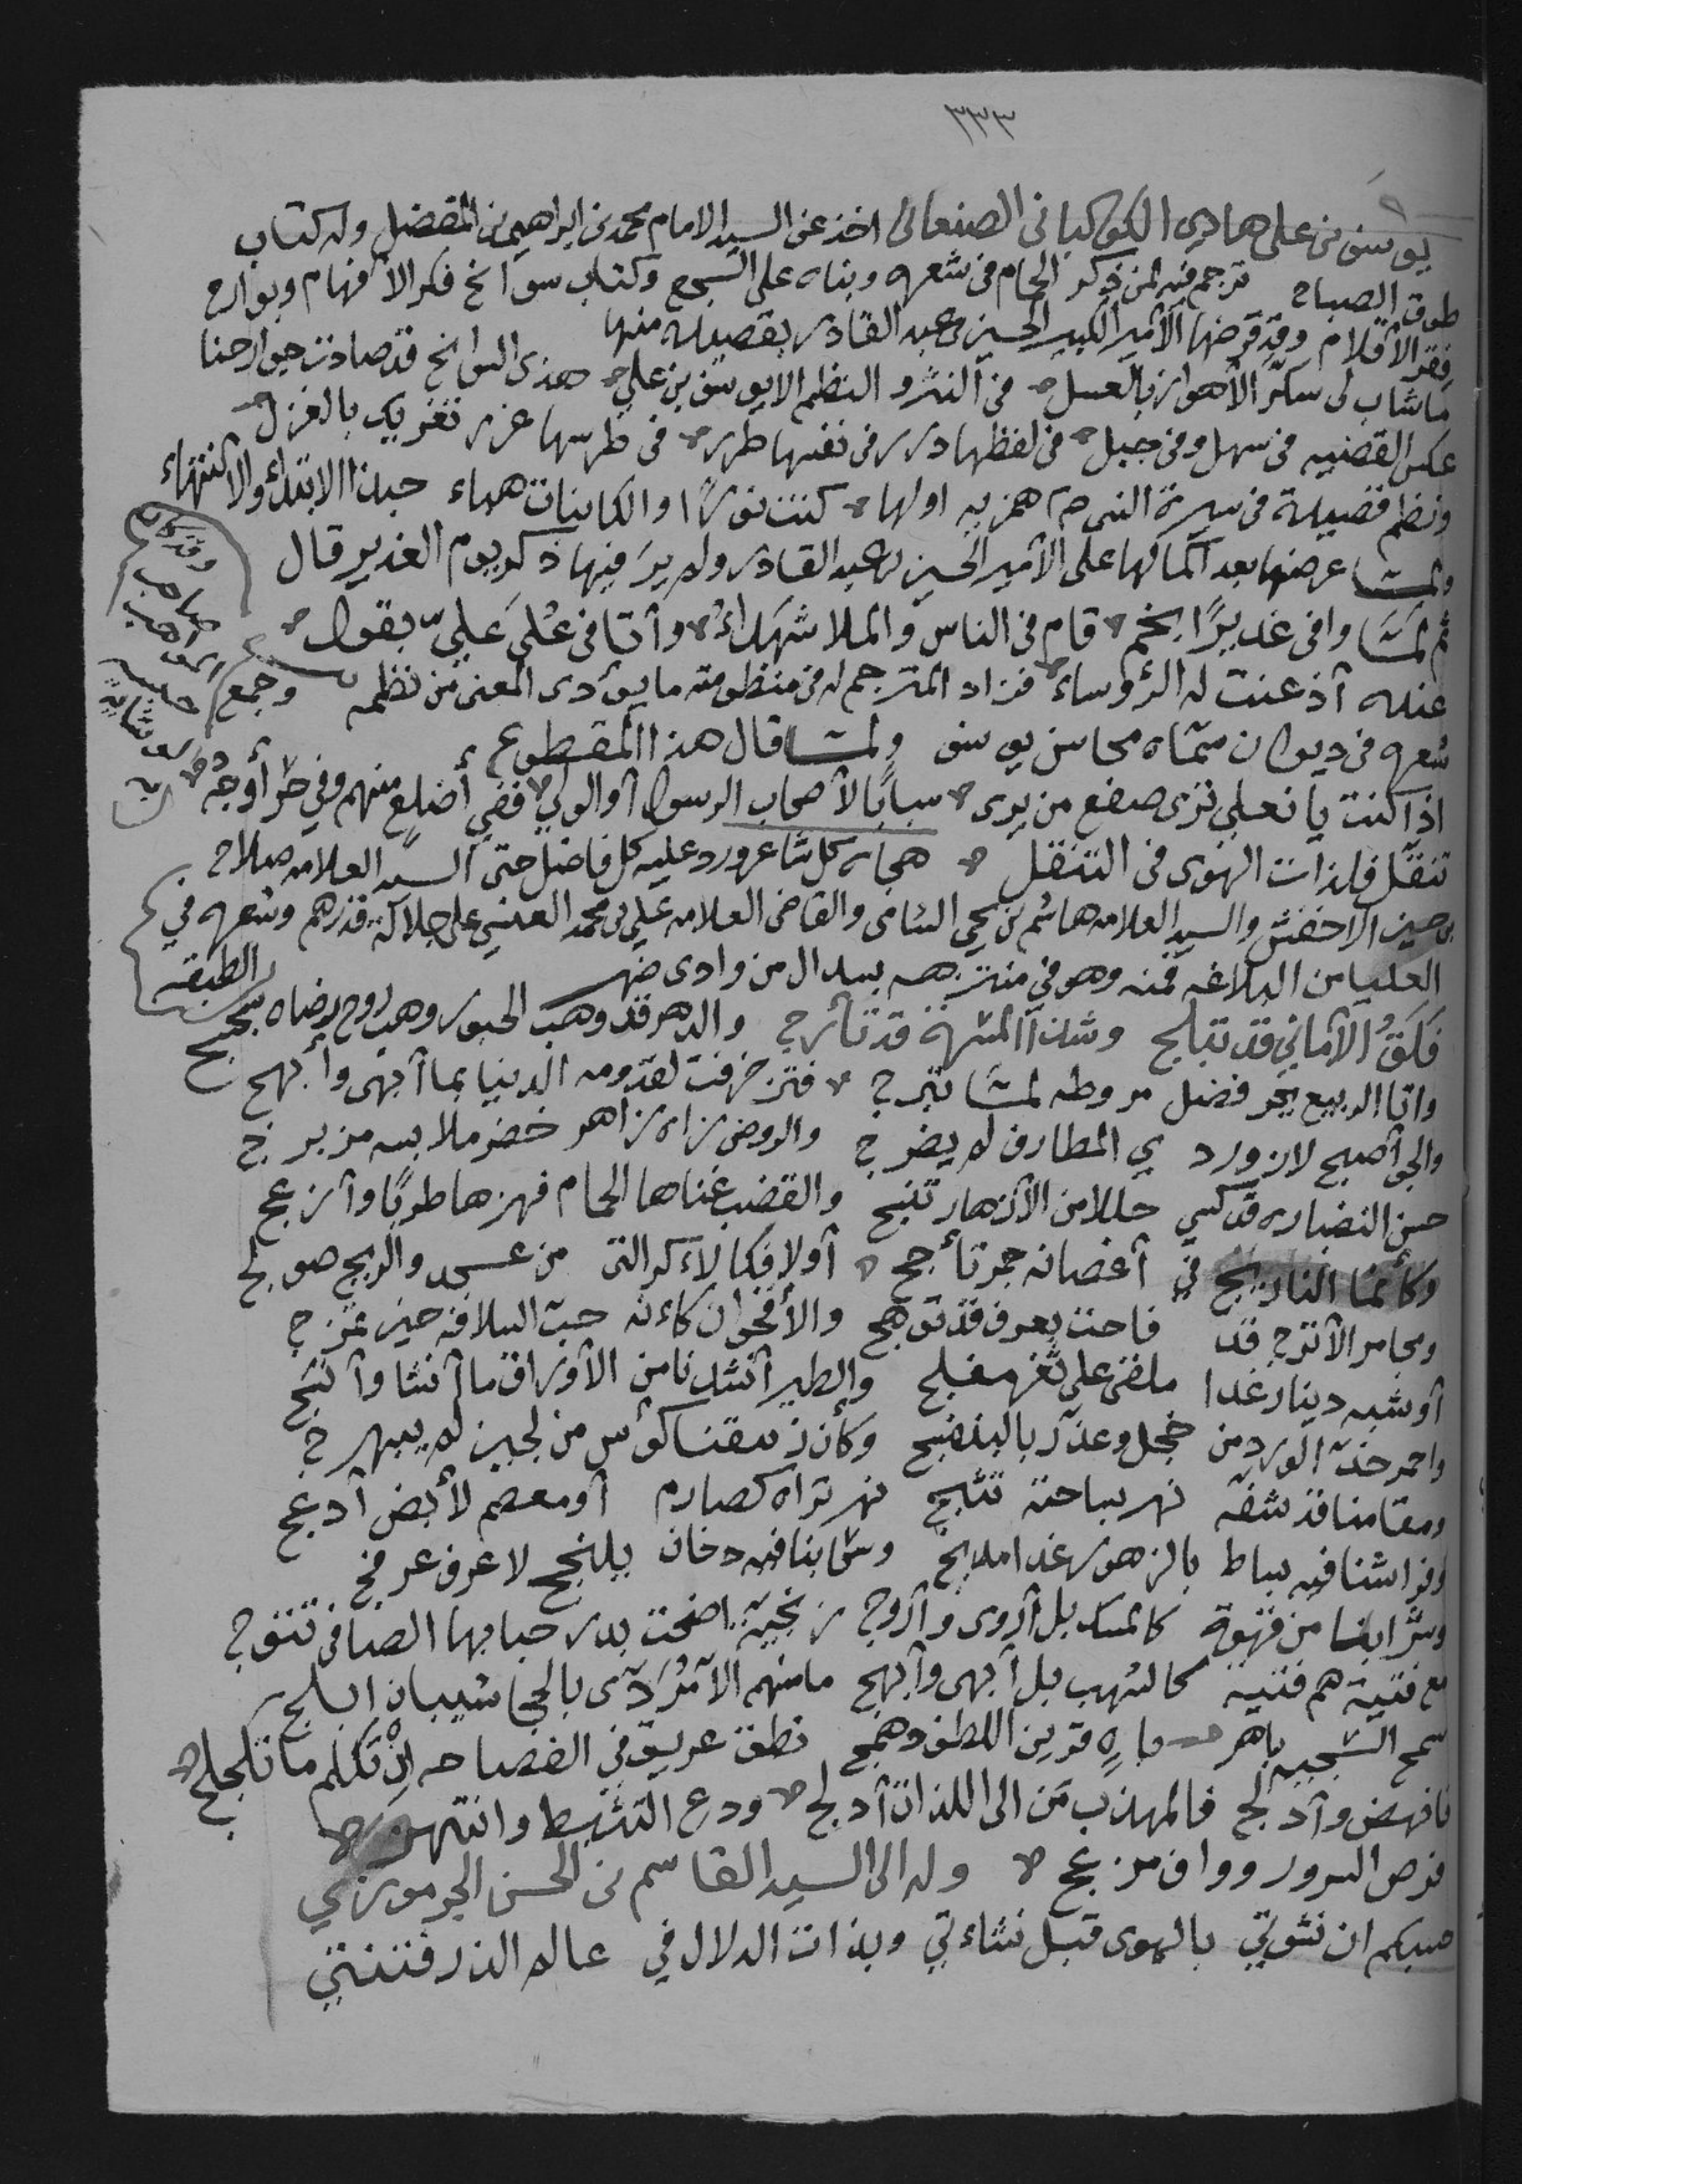 ٣٣٣
يوسف بن علي هادي الكوكباني الصنعاني اخذ عن السيد الامام محمد بن ابراهيم بن المفضل وله كتاب
طوق الصباح ترجم فيه لمن ذكر الحمام في شعره وبناه على السجع وكتاب سوانح فكر الأفهام وبوارح
فقر الأقلام وقد قرضها الأمير الكبير الحسين بن عبد القادر بقصيدة منها
ما شاب لي سكر الأهواز بالعسل في النثر والنظم الا يوسف بن علي هذي السوانح قد صادت جوارحنا
عكس القضيه في سهل وفي جبل في لفظها درر في نفسها طرر في طرسها غرر تغريك بالغزل
ونظم قصيدة في سيرة النبي صلعم همزيه اولها كنت نورًا والكاينات هباء حبذا الابتداء والانتهاء
ولمّا عرضها بعد اكمالها على الأمير الحسين بن عبد القادر ولم يرَ فيها ذكر يوم الغدير قال
ثم لمّا وافى غديرًا بخم قام في الناس والملا شهداءُ وأتا في عُلى عَليّ بقول
عنده أذعنت له الرؤوساء فزاد المترجم له في منظومته ما يؤدى المعنى من نظمه وجمع
شعره في ديوان سمّاه محاسن يوسف ولما قال هذا المقطوع
اذا كنت يا نعلي ترى صفع من يرى سبابًا لأصحاب الرسول أو الولي ففي أضلع منهم وفي حر أوجه
تنقّل فلذات الهوى في التنقل هجاه كل شاعر ورد عليه كل فاضل حتى السيد العلامه صلاح
بن حسين الأخفش والسيد العلامه هاشم بن يحيى الشامي والقاضي العلامه علي بن محمد العنسي على جلالة قدرهم وشعره في الطبقه
العليا من البلاغه فمنه وهو في منتزهه ببيدال من وادى ضهر
فَلَقُ الأماني قد تبلج وشذا المسرة قد تأرج والدهر قد وهب الحبور وهب روح رضاه سجسج
واتا الربيع يجر فضل مروطه لمّا تبرج فتزخرفت لقدومه الدنيا بما أبهى وأبهج
والجو أصبح لازورد ي المطارف لم يضرج والروض زاه زاهر خضر ملابسه مزبرج
حسن النضاره قد كسي حللا من الأزهار تنسج والقضب غناها الحمام فهزها طربًا وأزعج
وكأنما النارنج في أغصانه جمر تأجج أولا فكالأكر التي من عسجد والريح صولج
ومجامر الأترج قد فاحت بعرف قد توهج والأقحوان كأنه حبب السلافه حين تمزج
أو شبه دينار غدا ملقى على ثغر مفلج والطير أنشدنا من الأوراق ما أنشا وأنسج
واحمر خد الورد من خجل وعذّر بالبنفسج وكأن نرسقنا كؤس من لجين لم يبهرج
ومقامنا قد شقّه نهر بساحته تثبج نهر تراه كصارم أو معصم لأبض أدعج
وفراشنا فيه بساط بالزهور غدا مدبج وسحابنا فيه دخان يلنجج لا عرف عرفج
وشرابنا من قهوة كالمسك بل أروى وأروج زنجية اضحت بدر حبابها الصافى تتوج
مع فتية هم فتية كالشهب بل أبهى وأبهج ما منهم الا مُرَدّى بالحجا شيبان ابلج
سمح السجيه باهر قرين اللطف وهج نطق عريق في الفصاحه إنْ تكلم ما تلجلج
فانهض وأدلج فالمهذب مَن الى اللذات أدلج ودع التثبط وانتهز
فرص السرور وواف مزعج وله الى السيد القاسم بن الحسن الجرموزي
صبكم ان نشوتي بالهوى قبل نشاءتي وبذات الدلال في عالم الذر فتنتي
وقد كان
صاحب